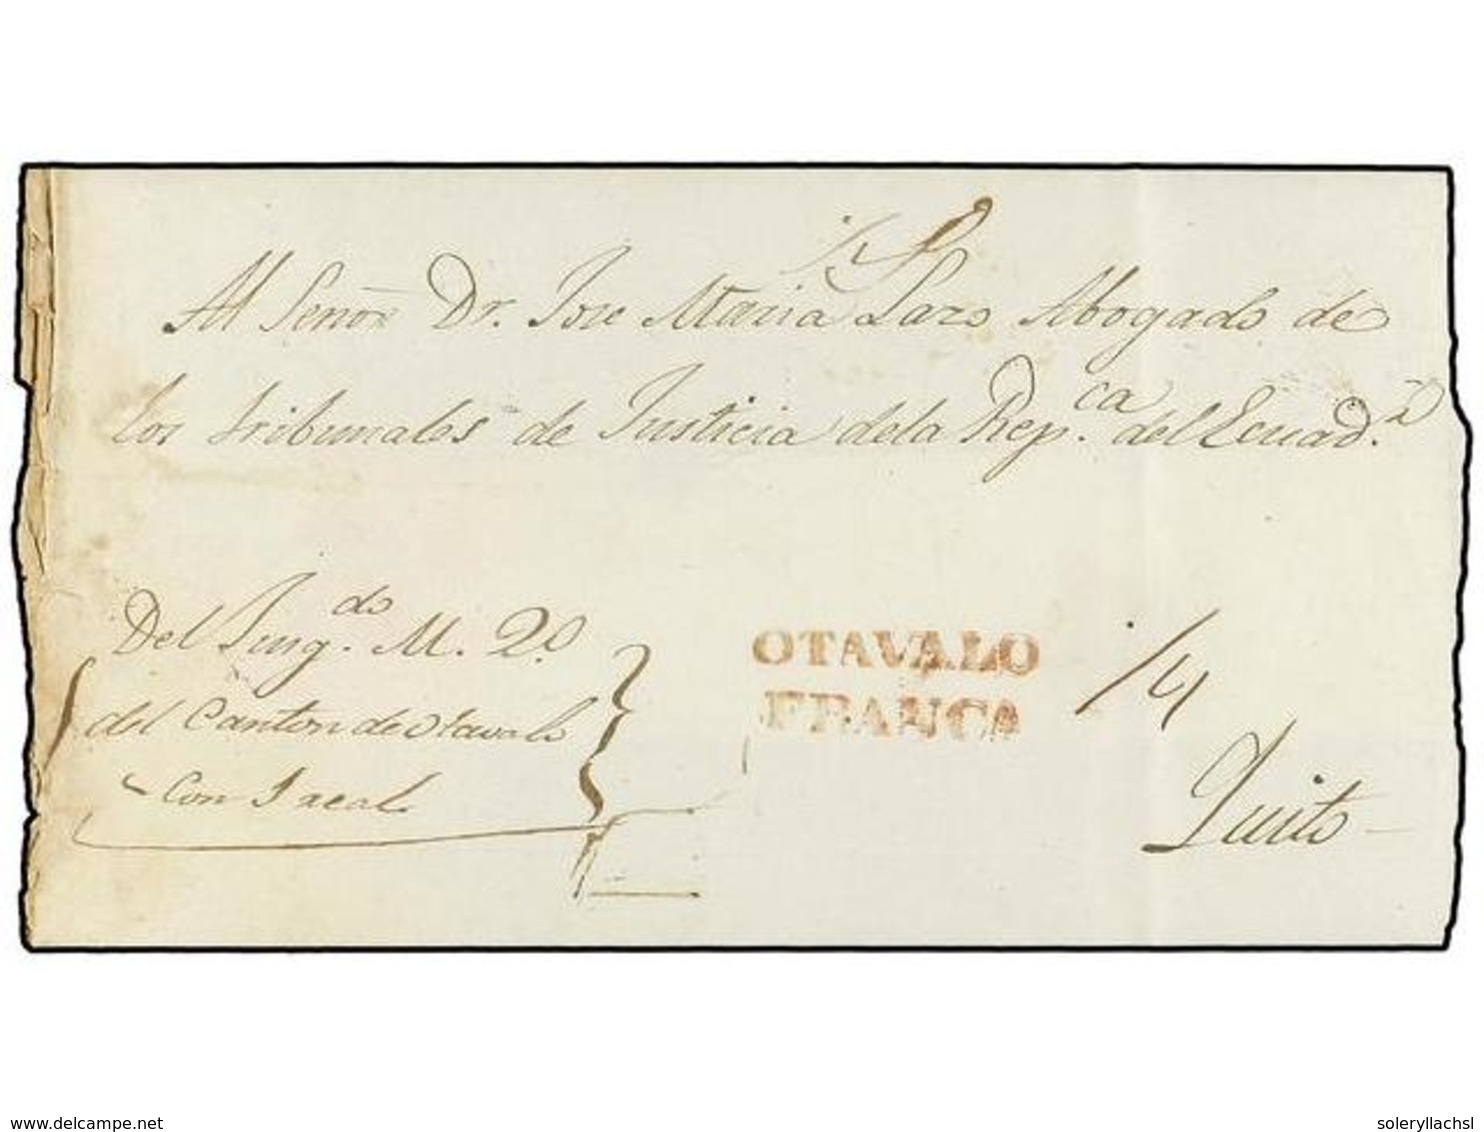 Al Señor Dr. Jose Maria Lazo Abogado de
los tribunales de Justicia dela Rep.ca del Ecuad.r
Del Juzg.do M. 2º
del Canton de Otavalo
Con 1 real
OTAVALO
FRANCA
Quito
www.delcampe.net
soleryllachsl